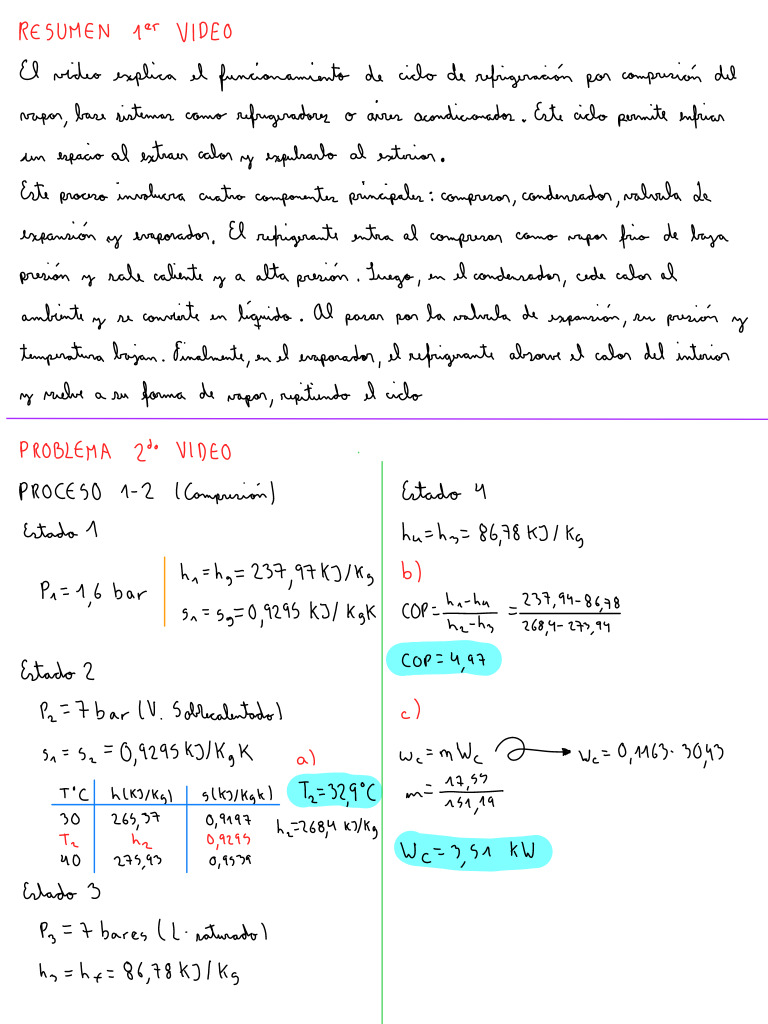 RESUMEN 1er VIDEO
El video explica el funcionamiento de ciclo de refrigeración por compresión del
vapor, base sistemas como refrigeradores o aires acondicionados. Este ciclo permite enfriar
un espacio al extraer calor y expulsarlo al exterior.
Este proceso involucra cuatro componentes principales: compresor, condensador, valvula de
expansión y evaporador. El refrigerante entra al compresor como vapor frio de baja
presión y sale caliente y a alta presión. Luego, en el condensador, cede calor al
ambiente y se convierte en líquido. Al pasar por la valvula de expansión, su presión y
temperatura bajan. Finalmente, en el evaporador, el refrigerante absorve el calor del interior
y vuelve a su forma de vapor, repitiendo el ciclo
PROBLEMA 2do VIDEO
PROCESO 1-2 (Compresión)
Estado 1
P1 = 1,6 bar
h1 = hg = 237,97 KJ/Kg
s1 = sg = 0,9295 KJ/KgK
Estado 2
P2 = 7 bar (V. Sobrecalentado)
s1 = s2 = 0,9295 KJ/KgK
T°C h(KJ/Kg) s(KJ/KgK)
30 265,37 0,9197
T2 h2 0,9295
40 275,93 0,9539
a)
T2 = 32,9°C
h2 = 268,4 KJ/Kg
Estado 3
P3 = 7 bares (L. saturado)
h3 = hf = 86,78 KJ/Kg
Estado 4
h4 = h3 = 86,78 KJ/Kg
b)
COP = h1-h4 / h2-h3 = 237,94-86,78 / 268,4-273,94
COP = 4,97
c)
Wc = m Wc → Wc = 0,1163 · 30,43
m = 17,59 / 151,19
Wc = 3,51 KW